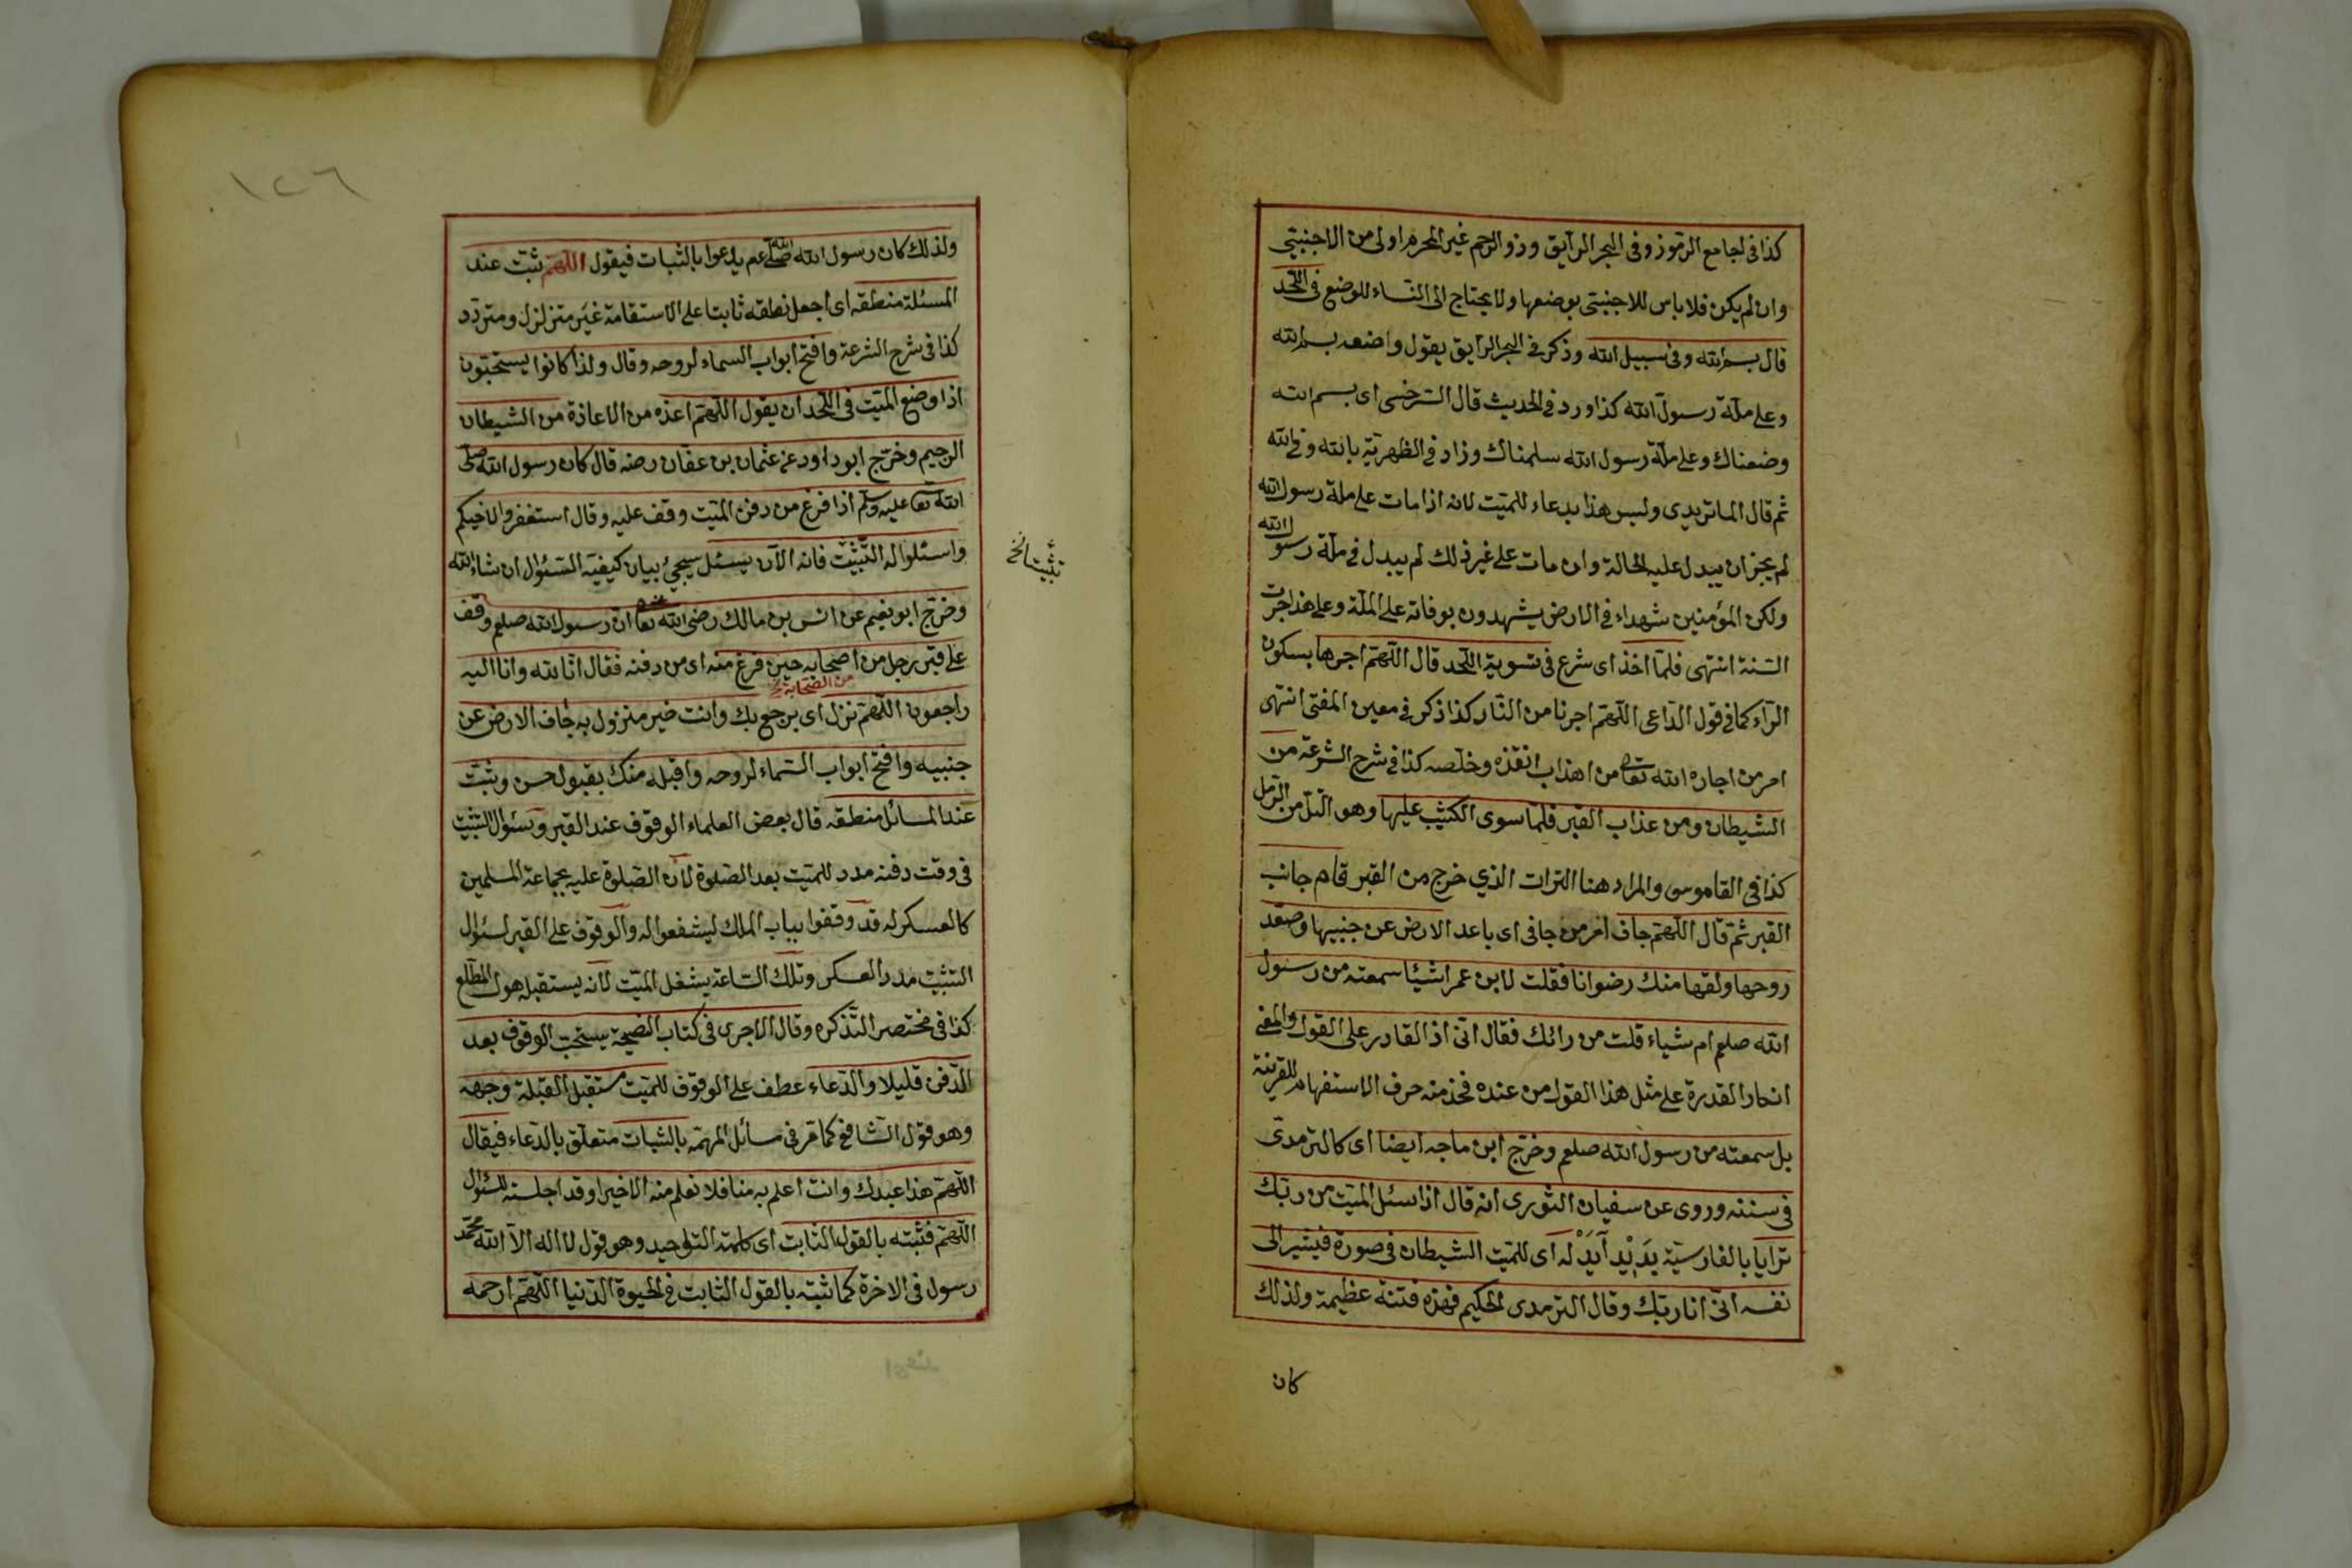 كذا فى لجامع الرموز وفى البحر الرآيق وذو الرحم غير المحرم اولى من الاجنبيّ
وان لم يكن فلا باس للاجنبتى بوضعها ولا يحتاج الى النّساء للوضع فى اللّحد
قال بسم الله وفى سبيل الله وذكر فى البحر الرآيق يقول واضعه بسم الله
وعلى ملّة رسول الله كذا ورد فى الحديث قال السّرخسى اى بسم الله
وضعناك وعلى ملّة رسول الله سلمناك وزاد فى الظهريّة بالله وفى الله
ثم قال الماتريدى وليس هذا بدعاء للميّت لانه اذا مات على ملة رسول الله
لم يجز ان يبدل عليه الحالة وان مات على غير ذلك لم يبدل فى ملّة رسول الله
ولكن المؤمنين شهداء فى الارض يشهدون بوفاته على الملّة وعلى هذا جرت
السّنة انتهى فلمّا اخذ اى شرع فى تسوية اللّحد قال اللّهمّ اجرها بسكون
الرّاء كما فى قول الدّاعى اللّهمّ اجرنا من النّار كذا ذكر فى معين المفتى انتهى
امر من اجاره الله تعالى من اهذاب انقذه وخلّصه كذا فى شرح الشّرعة من
الشيطان ومن عذاب القبر فلمّا سوى الكثيب عليها وهو التّل من الرّمل
كذا فى القاموسى والمراد هنا التراب الذي خرج من القبر قام جانب
القبر ثمّ قال اللّهمّ جاف امر من جافى اى باعد الارض عن جنبيها وصعّد
روحها ولقها منك رضوانا فقلت لابن عمر اشيئا سمعته من رسول
الله صلعم ام شياء قلت من رائك فقال انّى اذا لقادر على القول والمعنى
انكار القدرة على مثل هذا القول من عنده فحذف منه حرف الاستفهام للقرينة
بل سمعته من رسول الله صلعم وخرّج ابن ماجه ايضا اى كالترمدىّ
فى سننه وروى عن سفيان الثّورى انه قال اذا سئل الميّت من ربّك
ترايا بالفارسيّة يَدِيْد آيَدْ له اى للميّت الشيطان فى صورة فيشير الى
نفسه انّى انا ربّك وقال الترمدى الحكيم فهذه فتنة عظيمة ولذلك
كان
١٢٦
ولذلك كان رسول الله صلّى الله عم يدعوا بالثبات فيقول اللّهمّ ثبّت عند
المسئلة منطقه اى اجعل نطقه ثابتا على الاستقامة غير متزلزل ومتردّد
كذا فى شرح الشرعة وافتح ابواب السماء لروحه وقال ولذا كانوا يستحبّون
اذا وضع الميّت فى اللّحد ان يقول اللّهمّ اعذه من الاعاذة من الشيطان
الرجيم وخرّج ابو داود عن عثمان بن عفّان رضه قال كان رسول الله صلّى
الله تعا عليه وسلّم اذا فرغ من دفن الميّت وقف عليه وقال استغفروا لاخيكم
واسئلوا له التّثبّيت فانه الآن يسئل سيجئ بيان كيفيّة السّئوال ان شاء الله
تثبيتا نخ
وخرّج ابو نعيم عن انس بن مالك رضى الله تعا عنه انّ رسول الله صلعم وقف
على قبر رجل من اصحابه حين فرغ منه اى من دفنه فقال انّا لله وانا اليه
من الصّحابة نخ
راجعون اللّهمّ نزل اى يرجع بك وانت خير منزول به جاف الارض عن
جنبيه وافتح ابواب السّماء لروحه واقبله منك بقبول حسن وثبّت
عند المسائل منطقه قال بعض العلماء الوقوف عند القبر وسئوال التثبيت
فى وقت دفنه مدد للميّت بعد الصّلوة لانّ الصّلوة عليه بجماعة المسلمين
كالعسكر له قد وقفوا بباب الملك ليشفعوا له والوقوف على القبر لسئوال
التثبّيت مدد العسكر وتلك السّاعة يشغل الميّت لانّه يستقبله هول المطّلع
كذا فى مختصر التّذكره وقال الاجرى فى كتاب النصيحة يستحبّ الوقوف بعد
الدّفن قليلا والدّعاء عطف على الوقوف للميّت مستقبل القبلة وجهه
وهو قول الشّافعى كما مرّ فى مسائل المهمّه بالثبات متعلّق بالدّعاء فيقال
اللّهمّ هذا عبدك وانت اعلم به منا فلا نعلم منه الاخيرا وقد اجلسته للسّئوال
اللّهمّ فثبّته بالقول الثّابت اى كلمة التّوحيد وهو قول لا اله الاّ الله محمّد
رسول فى الاخرة كما ثبّته بالقول الثّابت فى الحيوة الدّنيا اللّهمّ ارحمه